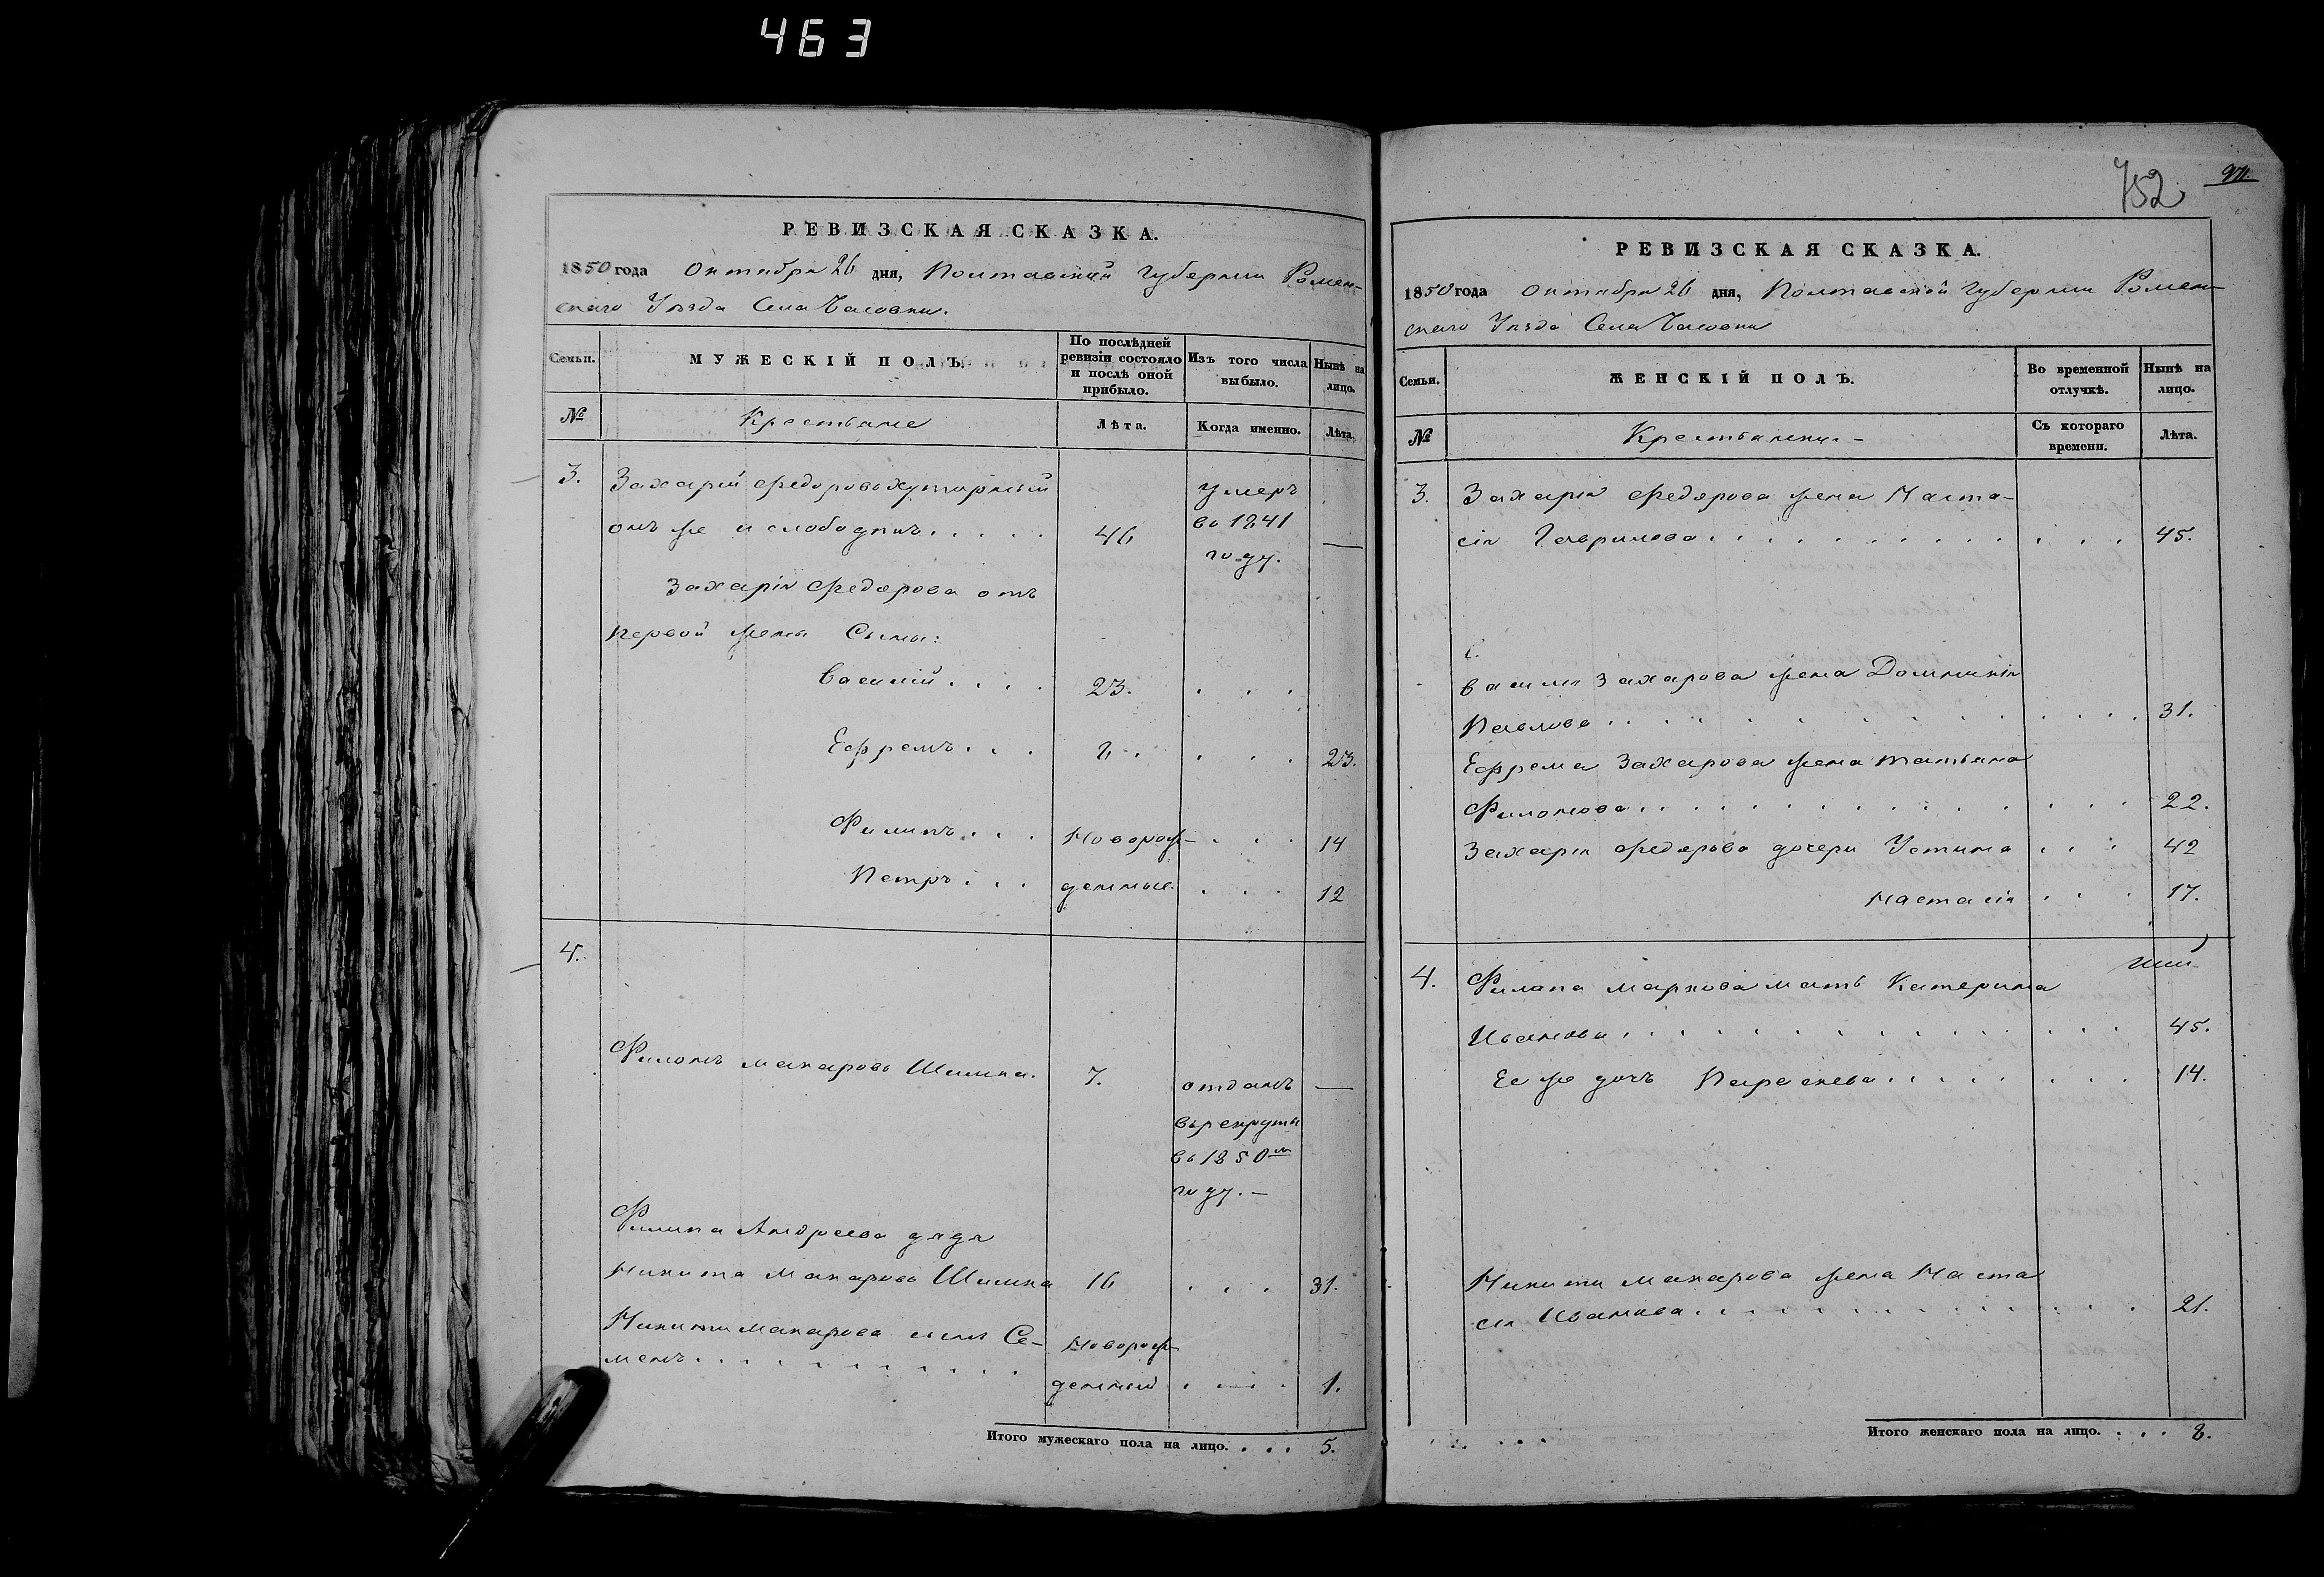 463
РЕВИЗСКАЯ СКАЗКА.
1850 года Октября 26 дня, Полтавской Губернии Ромен-
скаго Уѣзда Села
Семьи.
МУЖЕСКІЙ ПОЛЪ.
По послѣдней ревизіи состояло и послѣ оной прибыло.
Изъ того числа выбыло.
Нынѣ на лицо.
№
Крестьяне
Лѣта.
Когда именно.
Лѣта.
3. Захарій Федоровъ Хуторный умеръ
онъ же и слободникъ..... 46 въ 1841 —
году.
Захарія Федорова отъ
первой жены Сыны:
Василій.... 23. ...
Ефремъ... 8. ... 23.
Филипъ...Новорож- ... 14
Петръ... денные. ... 12
4.
Филонъ Макаровъ Шишка. 7. отданъ —
въ рекруты
въ 1850м
году.—
Филипа Андреева дядя
Никита Макаровъ Шишка 16 ... 31.
Никиты Макарова сынъ Се- Новорож-
менъ........... денный .... 1.
Итого мужескаго пола на лицо.... 5.
752
РЕВИЗСКАЯ СКАЗКА.
1850 года Октября 26 дня, Полтавской Губерніи Ромен-
скаго Уѣзда Села
Семьи.
ЖЕНСКІЙ ПОЛЪ.
Во временной отлучкѣ.
Нынѣ на лицо.
№
Крестьянки.-
Съ котораго времени.
Лѣта.
3. Захарія Федорова жена Наста-
сія Гаврилова............ 45.
Василія Захарова жена Домникія
Павлова............ 31.
Ефрема Захарова жена Татьяна
Филонова............ 22.
Захарія Федорова дочери Устина ... 42
Настасія ... 17.
4. Филона Маркова мать Катерина
Иванова............ 45.
Ее же дочь Параскева......... 14.
Никиты Макарова жена Наста
сія Иванова............ 21.
Итого женскаго пола на лицо.... 8.